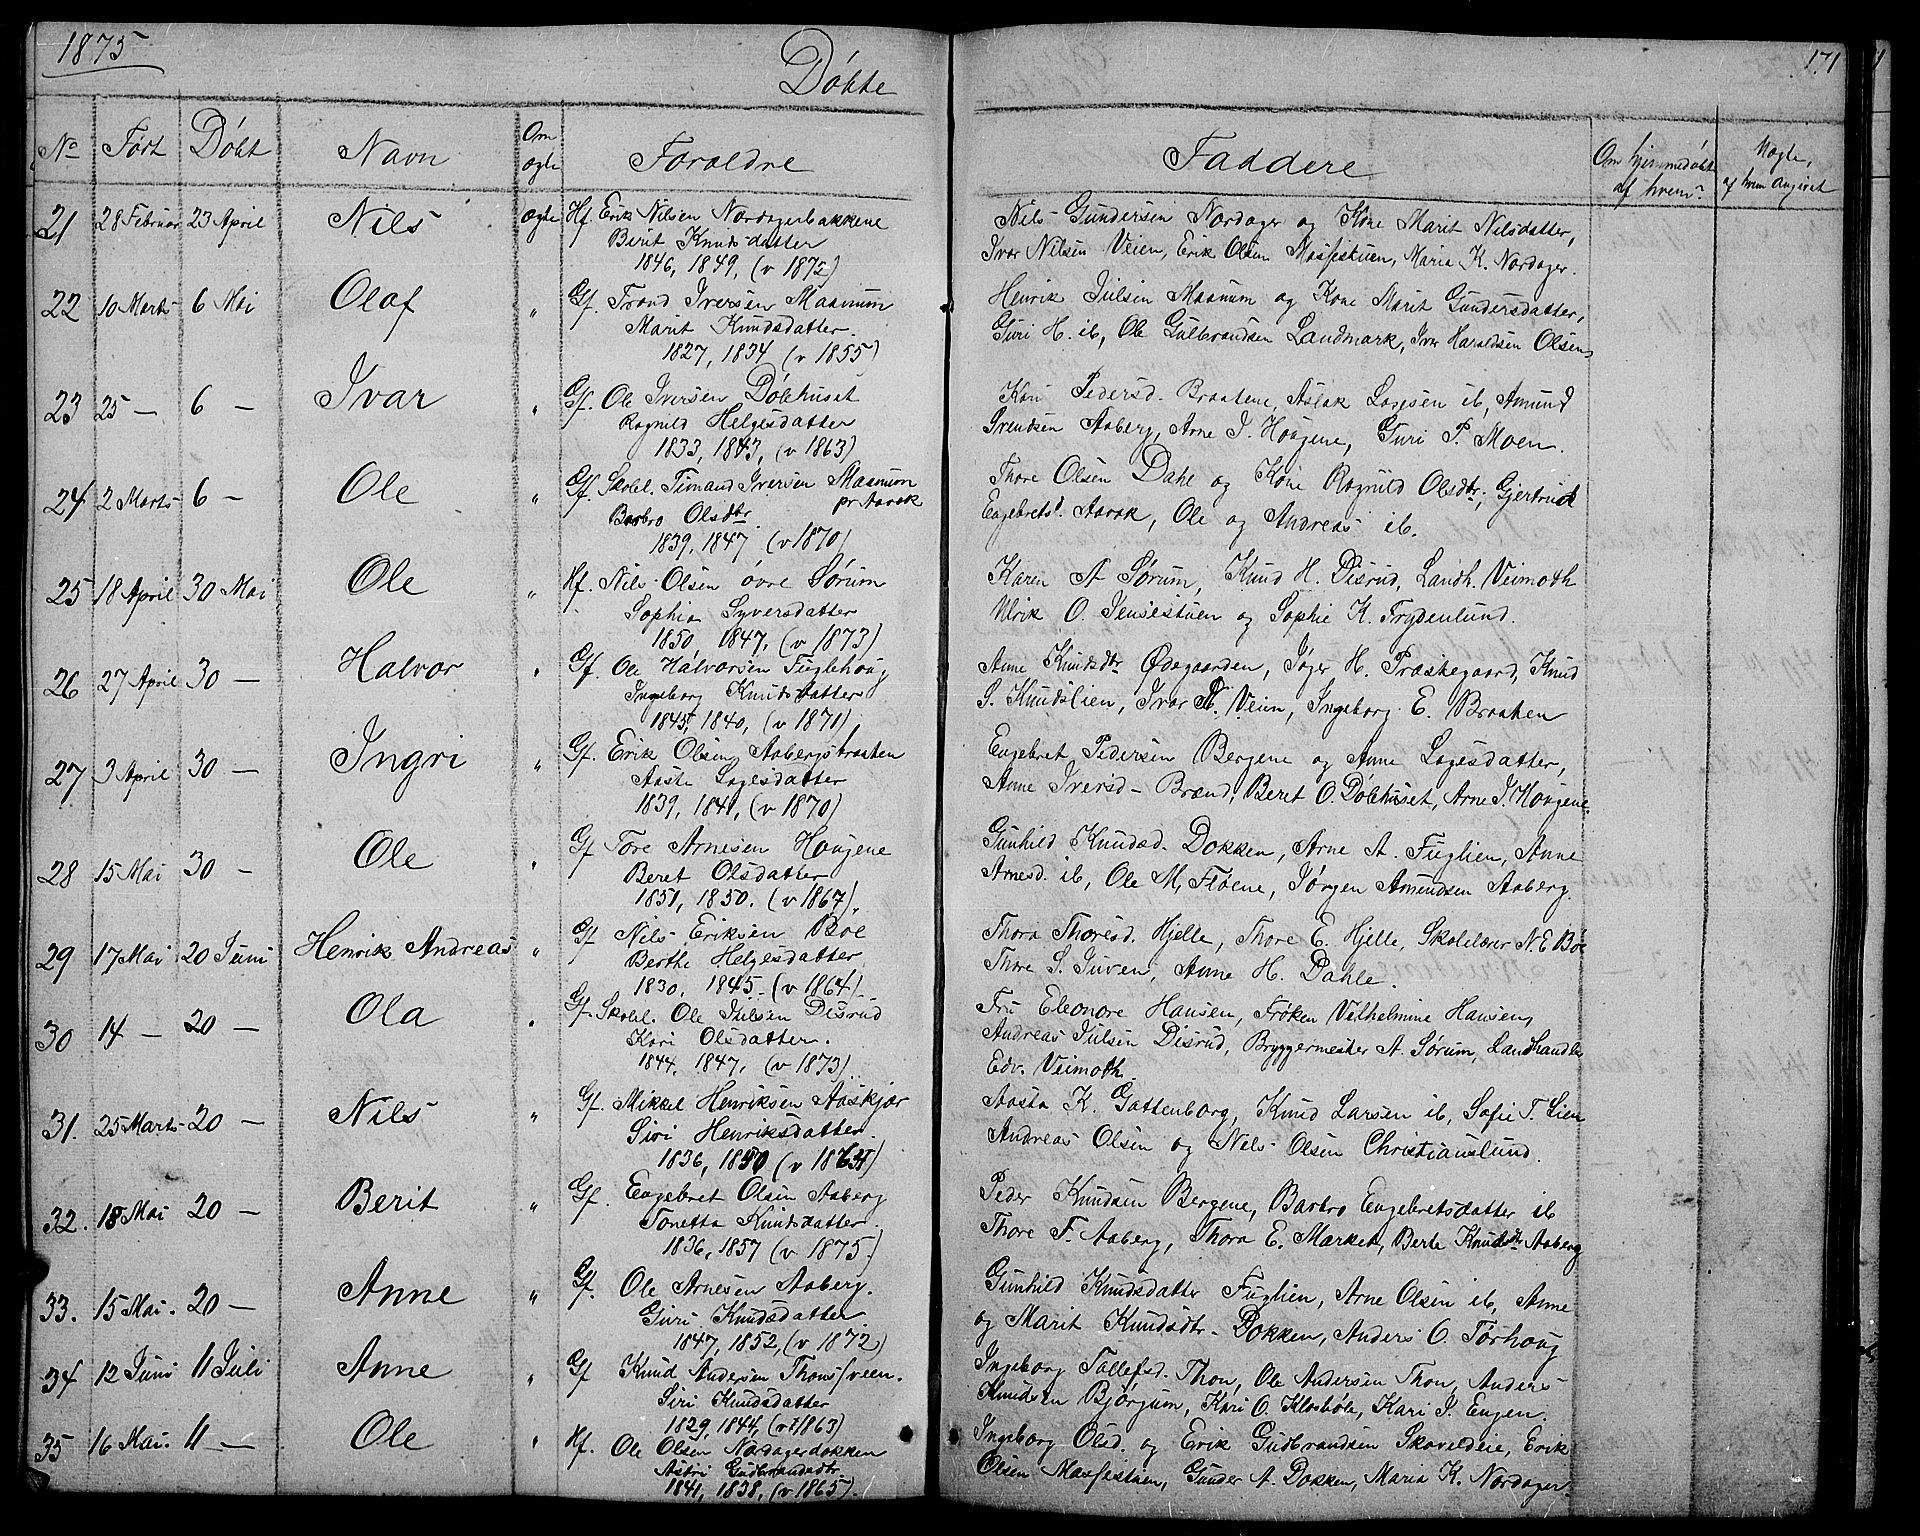 1875
Døbte
171
No
Født
Døbt
Navn
Om ægte
Foræld­re
Faddere
Om hjemmedøbt af hvem?
Uægte, af hvem angivet
21 28 Februar 23 April Nils ægte Hf. Erik Nilsen Nordagerbakkene
Berit Knudsdatter
1846, 1849, (v 1875)
Nils Gundersen Nordager og Kone Marit Nilsdatter,
Ivar Nilsen Veien, Erik Olsen Mosfestuen, Maria K. Nordager.
22 10 Marts 6 Mai Olaf " Gf. Trond Iversen Maanum
Marit Knudsdatter.
1827, 1834 (v 1855)
Henrik Julsen Maanum og Kone Marit Gundersdatter,
Guri H. ib, Ole Gulbrandsen Landmark, Iver Haraldsen Olsen,
23 25 — 6 — Ivar " Gf. Ole Iversen Døblhuset
Ragnild Helgesdatter
1833, 1843, (v 1863)
Kari Pedersd. Braatene, Aslak Lagesen ib, Amund
Svendsen Aaberg, Arne J. Hougene, Guri P. Moen.
24 2 Marts 6 — Ole " Gf. Skolel. Timand Iversen Maanum
pr Aarak
Barbro Olsdtr.
1839, 1847 (v 1870)
Thore Olsen Dahl og Kone Ragnild Olsdtr, Gjertrud
Engebretsd. Aarak, Ole og Andreas ib.
25 18 April 30 Mai Ole " Hf. Nils Olsen øvre Sørum
Sophia Syversdatter
1850 1847, (v 1873)
Karen A Sørum, Knud H. Disrud, Landh. Veimoth
Ulrik O. Jensestuen og Sophie K. Frydenlund.
26 27 April 30 — Halvor " Gf. Ole Halvorsen Fuglehoug
Ingeborg Knudsdatter
1845, 1840, (v 1871)
Anne Knudsdtr Ødegaarden, Joger H. Præstegaard, Knud
S. Knudslien, Ivar N. Veien, Ingeborg E. Braaten
27 3 April 30 — Ingri " Gf. Erik Olsen Aabergsbraaten
Aaste Lagesdatter
1839, 1841, (v 1870)
Engebret Pedersen Bergene og Anne Lagesdatter,
Anne Iversd — Brænd, Beret O. Døblhuset, Arne J. Hougene.
28 15 Mai 30 — Ole " Gf Tore Arnesen Hougene
Beret Olsdatter
1851, 1850. (v 1867).
Gunhild Knudsd. Dokken, Arne A. Fuglien, Anne
Arnesd. ib, Ole M. Fløene, Jørgen Amundsen Aaberg.
29 17 Mai 20 Juni Henrik Andreas " Gf Nils Eriksen Bøe
Berthe Helgesdatter
1830, 1845. (v 1864)
Thora Thoresd. Hjelle, Thore E. Hjelle, Skolelærer N E Bøe
Thore S. Juven, Anne H. Dahle.
30 14 — 20 — Ola " Gf. Skolel. Ole Julsen Disrud
Kari Olsdatter.
1844, 1847, (v 1873)
Fru Eleonore Hansen, Frøken Vilhelmine Hansen,
Andreas Julsen Disrud, Bryggermester A. Sørum, Landhandler
Edv. Veimoth.
31. 25 Marts 20 — Nils " Gf. Mikkel Henriksen Aaskjær
Siri Henriksdatter.
1836, 1850 (v 1864)
Aasta K. Gattenborg, Knud Larsen ib, Sofie T. Lien
Andreas Olsen og Nels Olsen Christianslund.
32. 18 Mai 20 — Berit " Gf. Engebret Olsen Aaberg
Tonetta Knudsdatter.
1836, 1857 (v 1875.)
Peder Knudsen Bergene, Barbro Engebretsdatter ib
Thore F. Aaberg, Thora E. Market, Berte Knudsdtr Aaberg
33. 15 Mai. 20 — Anne " Gf. Ole Arnesen Aaberg.
Guri Knudsdatter.
1847, 1852, (v 1872)
Gunhild Knudsdatter Fuglien, Arne Olsen ib, Anne
og Marit Knudsdtr. Dokken, Anders O. Torhoug
34 12 Juni 11 Juli Anne " Gf Knud Andersen Thonsfveen.
Siri Knudsdatter
1829, 1844, (v 1863)
Ingeborg Tollefsd. Thon, Ole Andersen Thon, Anders
Knudsen Bjørgum, Kari O. Klosbøle, Kari J. Eugen.
35 16 Mai. 11 — Ole " Hf. Ole Olsen Nordagerdokken
Astri Gudbrandsdtr.
1841, 1838, (v 1865).
Ingeborg Olsd. og Erik Gudbrandsen Skoveldeie, Erik
Olsen Mosfestuen, Gunder A. Dokken, Maria K. Nordager.